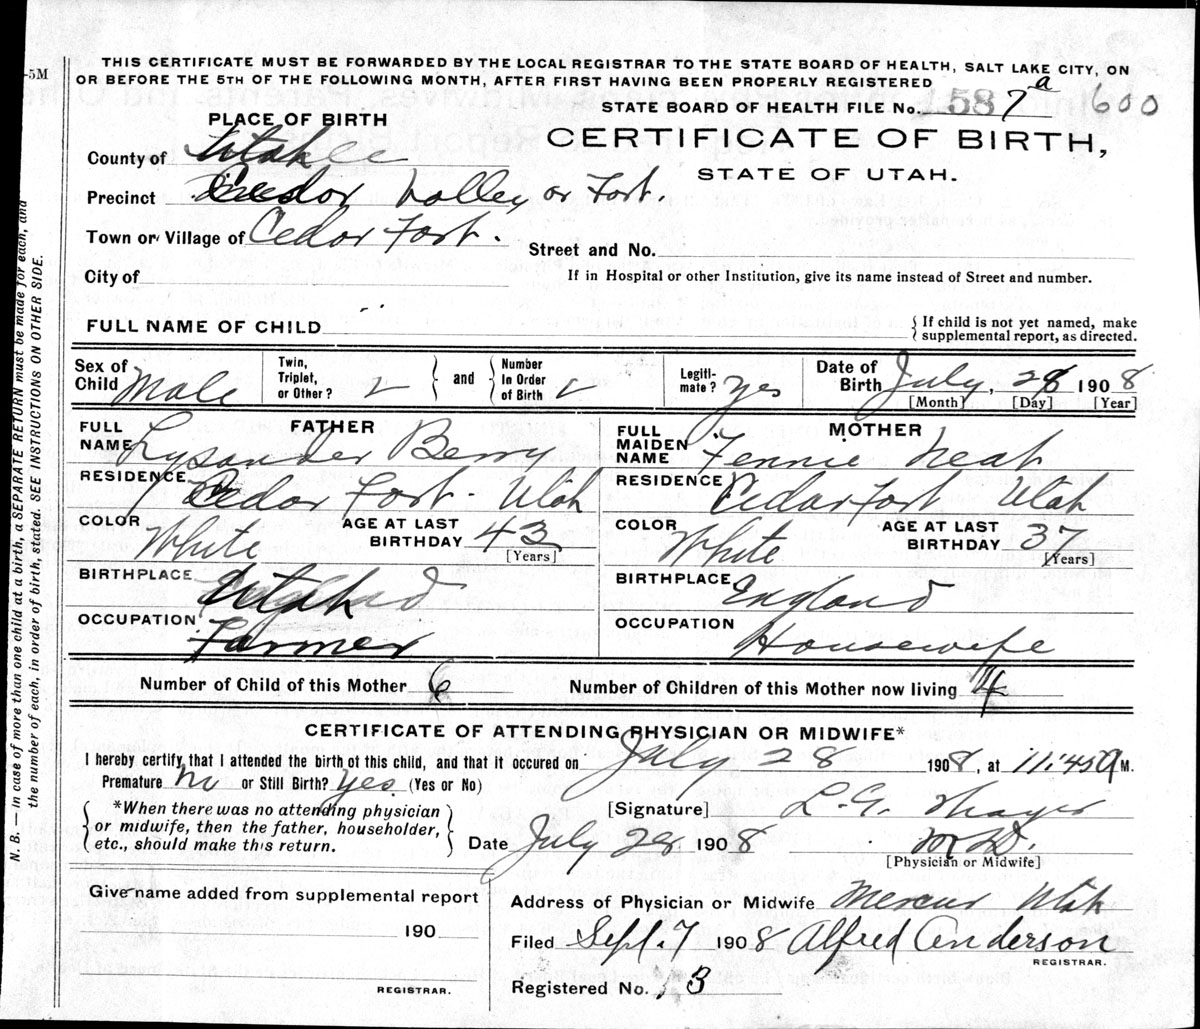 5M
THIS CERTIFICATE MUST BE FORWARDED BY THE LOCAL REGISTRAR TO THE STATE BOARD OF HEALTH, SALT LAKE CITY, ON
OR BEFORE THE 5TH OF THE FOLLOWING MONTH, AFTER FIRST HAVING BEEN PROPERLY REGISTERED
STATE BOARD OF HEALTH FILE No. 1587 a 600
PLACE OF BIRTH
CERTIFICATE OF BIRTH,
STATE OF UTAH.
County of Utah
Precinct Cedar Valley or Fort.
Town or Village of Cedar Fort.
Street and No.
City of
If in Hospital or other Institution, give its name instead of Street and number.
FULL NAME OF CHILD
{ If child is not yet named, make
supplemental report, as directed.
Sex of Child Male
Twin, Triplet, or Other? and Number In Order of Birth
Legiti-mate? Yes
Date of Birth July, 28 1908
[Month] [Day] [Year]
FATHER
FULL NAME Lysander Berry
RESIDENCE Cedar Fort. Utah
COLOR White AGE AT LAST BIRTHDAY 43 [Years]
BIRTHPLACE Utah
OCCUPATION Farmer
MOTHER
FULL MAIDEN NAME Fennie Neat
RESIDENCE Cedar Fort Utah
COLOR White AGE AT LAST BIRTHDAY 37 [Years]
BIRTHPLACE England
OCCUPATION Housewife
Number of Child of this Mother 6 Number of Children of this Mother now living 4
CERTIFICATE OF ATTENDING PHYSICIAN OR MIDWIFE*
I hereby certify that I attended the birth of this child, and that it occured on July 28 1908, at 11:45 a M.
Premature no or Still Birth? Yes. (Yes or No)
*When there was no attending physician
or midwife, then the father, householder,
etc., should make this return.
[Signature] L. G. Thayer
Date July 28 1908 M D.
[Physician or Midwife]
Give name added from supplemental report
190
REGISTRAR.
Address of Physician or Midwife Mercur Utah
Filed Sept. 7 1908 Alfred Anderson
REGISTRAR.
Registered No. 3
N. B. — In case of more than one child at a birth, a SEPARATE RETURN must be made for each, and
the number of each, in order of birth, stated. SEE INSTRUCTIONS ON OTHER SIDE.